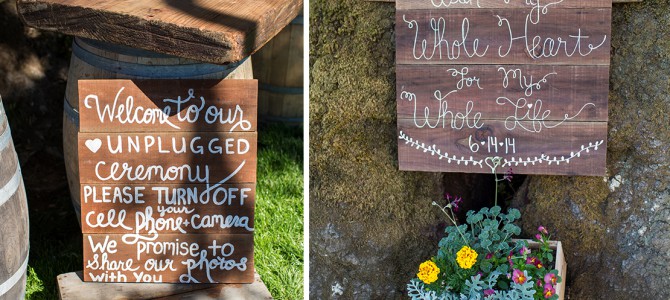 Welcome to our
UNPLUGGED
ceremony
PLEASE TURN OFF
your
cell phone + camera
We promise to
share our photos
with you
With my
Whole Heart
for My
Whole Life
6·14·14